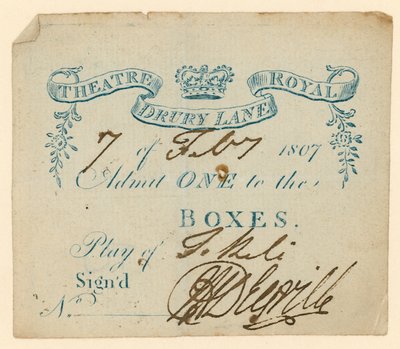 THEATRE ROYAL
DRURY LANE
7 of Feby 1807
Admit ONE to the
BOXES.
Play of
Sign'd
No.